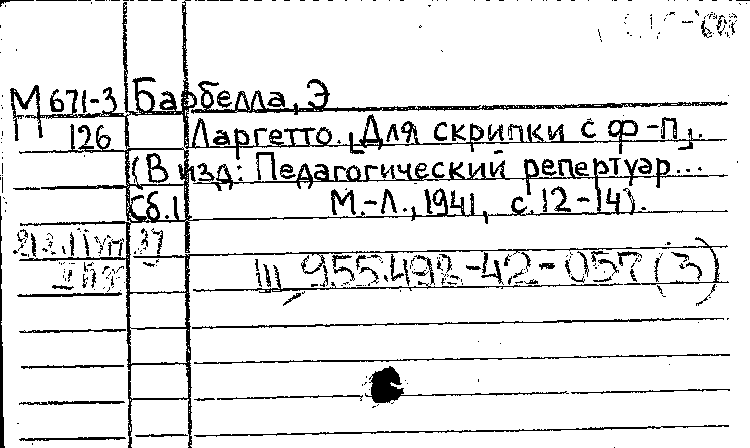 М 671-3 Барбелла, Э
126 Ларгетто. [Для скрипки с ф-п].
(В изд: Педагогический репертуар...
Сб.1 М.-Л., 1941, с. 12-14).
37
III 955.498-42-057 (3)